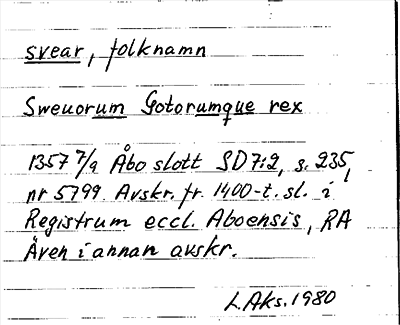 svear, folknamn
Sweuorum Gotorumque rex
1357 7/9 Åbo slott SD7:2, s. 235,
nr 5799. Avskr. fr. 1400-t. sl. i
Registrum eccl. Aboensis, RA
Även i annan avskr.
L.Aks. 1980